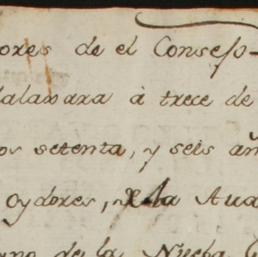 ores de el Consejo
dalaxara à trece de
os setenta, y seis añ
oydores, de la Aua
no de la Nueba